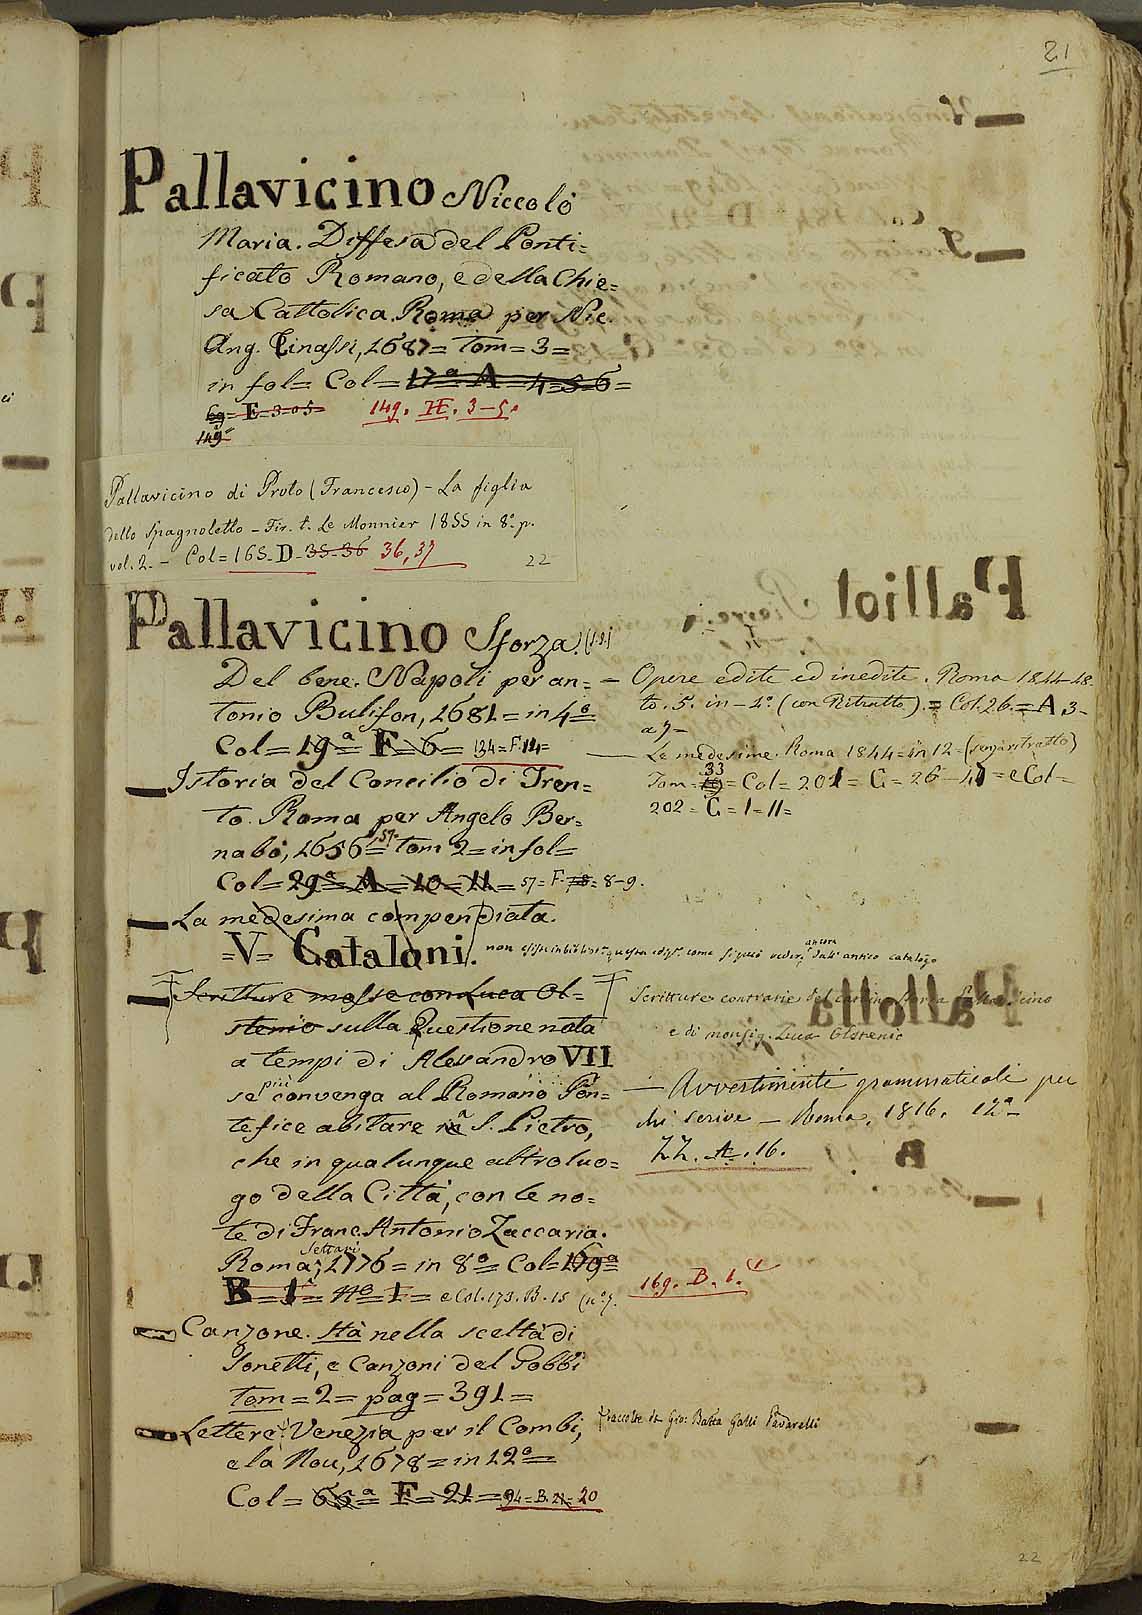 21
Pallavicino Niccolò
Maria. Diffesa del Ponti=
ficato Romano, e della Chie=
sa Cattolica. Roma per Nic.
Ang. Tinassi, 1687= Tom= 3=
in fol= Col= 17ª A = 4=5=6=
69= E= 3=05 149. H. 3-5.
149ª
Pallavicino di Proto (Francesco) - La figlia
dello Spagnoletto - Fir. t. Le Monnier 1855 in 8º p.
vol. 2. - Col= 165- D- 35-36 36, 37
22
Pallavicino Sforza.
Del bene. Napoli per an=
tonio Bulifon, 1681= in 4º=
Col= 19ª= F= 6= 134= F. 14=
Istoria del Concilio di Tren=
to. Roma per Angelo Ber=
nabò, 1656= 57. Tom 2= in fol=
Col= 29ª= A= 10= 11= 57= F- 8-9.
La medesima compendiata.
=V= Cataloni. non esiste in questa come si può vedere ancora dall' antico catalogo
Scritture mosse con Luca Ol=
stenio sulla Questione nata
a tempi di Alesandro VII
se più convenga al Romano Pon=
tefice abitare a S. Pietro,
che in qualunque altro luo=
go della Città, con le no=
te di Franc. Antonio Zaccaria.
Roma, Settari 1776= in 8º= Col= 169ª
B= 1ª= Nº 1= e Col. 173. B. 15 (nº 7.
Canzone. stà nella scelta di
Sonetti, e Canzoni del Gobbi
tom= 2= pag= 391=
Lettere. Venezia per il Combi, raccolte da Gio: Batta Galli Pavarelli
e la Nou, 1678= in 12º=
Col= 65ª= F= 21= 94= B. 21= 20
- Opere edite ed inedite. Roma 1844-48.
to. 5. in-4º. (con Ritratto). = Col. 26. = A. 3-
a 7-
- Le medesime. Roma 1844= in 12= (senza ritratto)
Tom= 33 = Col= 201= G= 26-41= e Col=
202= G= 1= 11=
Scritture contrarie del Cardin. Sforza Pallavicino
e di monsig. Luca Olstenio
- Avvertimenti grammaticali per
chi scrive - Roma, 1816. 12º-
ZZ. A. 16.
169. B. 1. (1
22